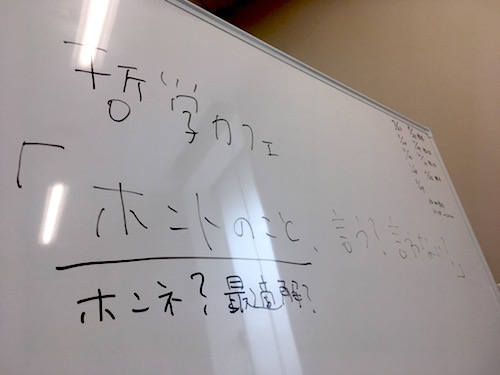 哲学カフェ
「ホントのこと、言う?言わない?」
ホンネ?最適解?